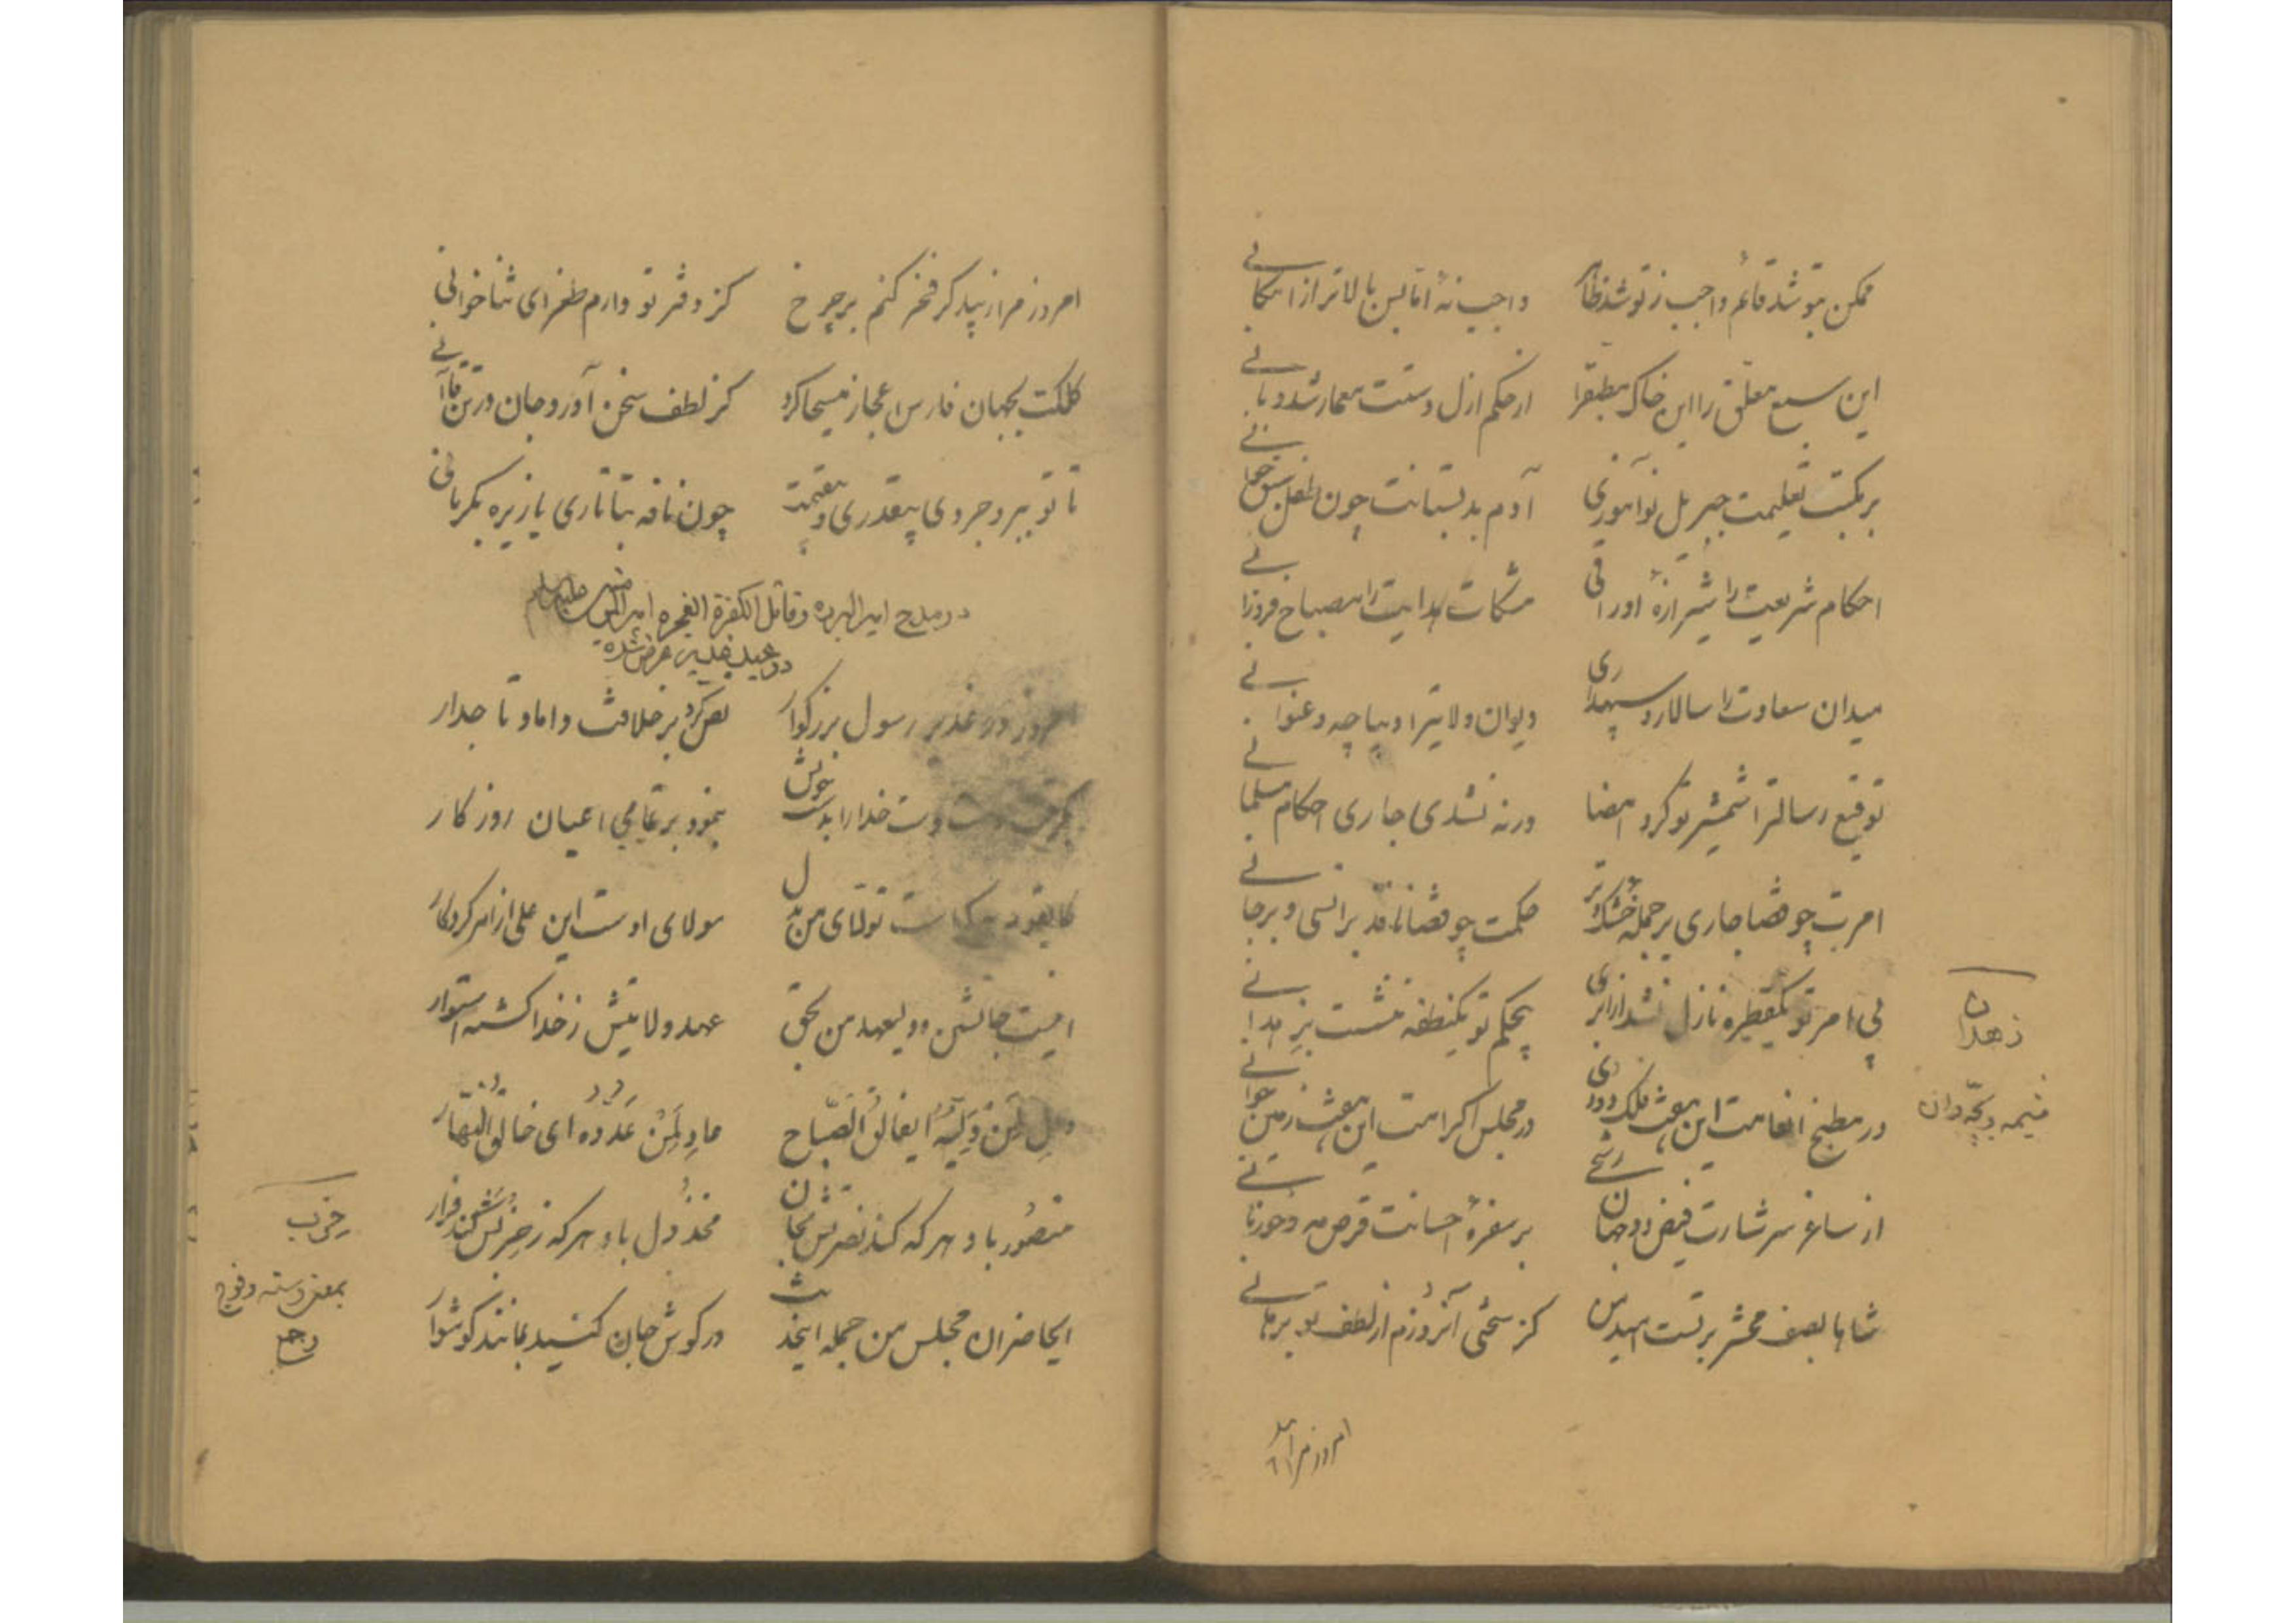 ممکن بتو شد قائم واجب ز تو شد ظاهر واجب نهٔ اما لیس بالاتر از امکانی
این سبع معلق را این خاک مطبق را از حکم ازل دستت معمار شد و بانی
بر مکتب تعلیمت جبریل نوآموزی آدم بدبستانت چون طفل سبق خوانی
احکام شریعت را شیرازهٔ اوراقی مشکات هدایت را مصباح فروزانی
میدان سعادت را سالار و سپهداری دیوان ولایترا دیباچه و عنوانی
توقیع رسالترا شمشیر تو کرد امضا ورنه نشدی جاری احکام مسلمانی
امرت چو قضا جاری بر جمله خشک و تر حکمت چو قضا نافذ بر انسی و بر جانی
بی امر تو یکقطره نازل نشد از ابری بیحکم تو یکنطفه ننشست بزهدانی
زهدان
بچه دان
در مطبخ انعامت این هفت فلک دودی در مجلس اکرامت این هفت زمین خوانی
از ساغر سرشارت فیض دو جهان رشحی بر سفرهٔ احسانت قرص مه و خور نانی
شاها بصف محشر بر تست امید من کز سختی آنروزم از لطف تو برهانی
امروز مرا
امروز مرا زیبد گر فخر کنم بر چرخ کز دفتر تو دارم طغرای ثناخوانی
کلکت بجهان فارس اعجاز مسیحا کرد کز لطف سخن آورد جان در تن قاآنی
تا تو ببروجردی بیقدری و بیقیمت چون نافه بتاتاری یا زیره بکرمانی
در مدح امیر البرره و قاتل الکفرة الفجره امیرالمؤمنین علیه السلام
در عید غدیر عرض شده
امروز در غدیر رسول بزرگوار نص کرد بر خلافت داماد تاجدار
بگرفت دست دست خدا را بدست خویش بنمود بر تمامی اعیان روزگار
مولای اوست این علی از امر کردگار
اینست جانشین و ولیعهد من بحق عهد ولایتش ز خدا گشته استوار
وال لمن ولیه ایفالق الصباح عاد لمن عدوه ای خالق النهار
منصور باد هر که کند نصرتش بجان مخذول باد هر که ز حزبش کند فرار
حزب
بمعنی دسته و فوج
ایحاضران مجلس من جمله این حدیث در گوش جان کنید بمانند گوشوار